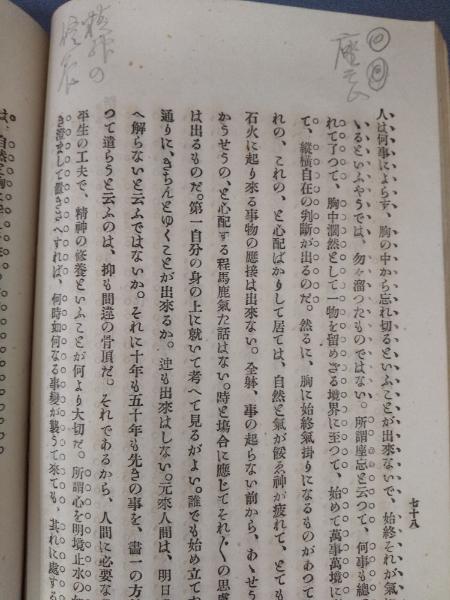 七十八
人は何事によらず、胸の中から忘れ切るといふことが出來ないで、始終それが氣
いるといふやうでは、勿々溜つたものではない。所謂座忘と云つて、何事も總
れて了つて、胸中濶然として一物を留めざる境界に至つて、始めて萬事萬境に
て、縱橫自在の判斷が出るのだ。然るに、胸に始終氣掛りになるものがあつて
れの、これの、と心配ばかりして居ては、自然と氣が餒ゑ神が疲れて、とても
石火に起り來る事物の應接は出來ない。全躰、事の起らない前から、あゝせう
かうせうの、と心配する程馬鹿氣た話はない。時と塲合に應じてそれ〲の思慮
は出るものだ。第一自分の身の上に就いて考へて見るがよい。誰でも始め立て
通りに、きちんとゆくことが出來るか。迚も出來はしない。元來人間は、明日の
へ解らないと云ふではないか。それに十年も五十年も先きの事を、畫一の方
つて遣らうと云ふのは、抑も間違の骨頂だ。それであるから、人間に必要な
平生の工夫で、精神の修養といふことが何より大切だ。所謂心を明鏡止水の如
き澄まして置きさへすれば、何時如何なる事變が襲うて來ても、其れに處する
精神の